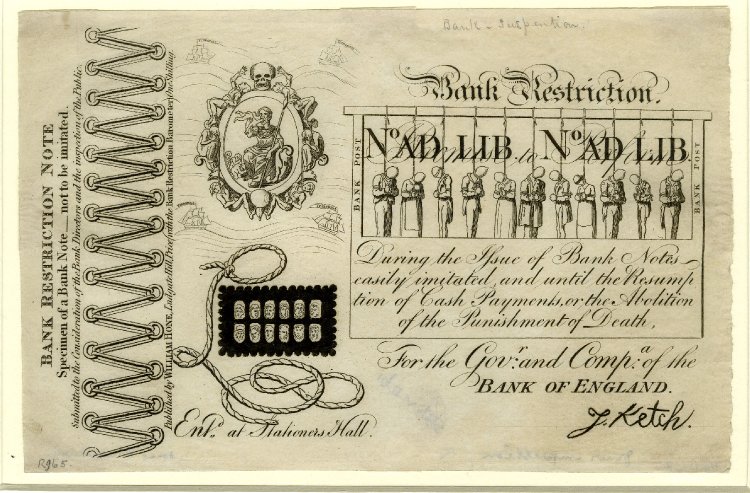 Bank - Suspention.
BANK RESTRICTION NOTE
Specimen of a Bank Note — not to be imitated.
Submitted to the Consideration of the Bank Directors and the inspection of the Public.
Published by WILLIAM HONE, Ludgate Hill, Price (with the Bank Restriction Barometer) One Shilling.
Bank Restriction.
Nº AD LIB Nº AD LIB
to
BANK POST
BANK POST
During the Issue of Bank Notes
easily imitated, and until the Resump
tion of Cash Payments, or the Abolition
of the Punishment of Death,
For the Govʳ. and Compᵃ. of the
BANK OF ENGLAND.
J. Ketch.
Entᵈ. at Stationers Hall.
R965.